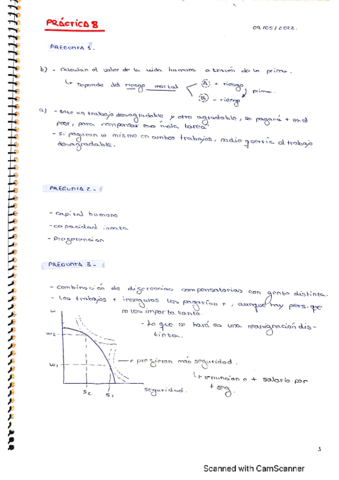 PRÁCTICA 8
09/05/2022
PREGUNTA 1.
b) - calculan el valor de la vida humana a través de la prima.
↳ depende del riesgo mortal
A + riesgo
B - riesgo
prima
a) - Ante un trabajo desagradable y otro agradable, se pagará + en el
peor, para compensar esa mala tarea.
- si pagaran lo mismo en ambos trabajos, nadie querría el trabajo
desagradable.
PREGUNTA 2.-
- capital humano
- capacidad innata
PREGUNTA 3.-
- combinación de diferencias compensatorias con gente distinta.
- los trabajos + inseguros los pagarían +, aunque hay pers. que
no les importa tanto.
- Lo que se hará es una reasignación dis-
tinta.
W
W2
W1
S2
S1
seguridad
prefieren más seguridad.
↳ renuncian a + salario por
+ seg.
3
Scanned with CamScanner